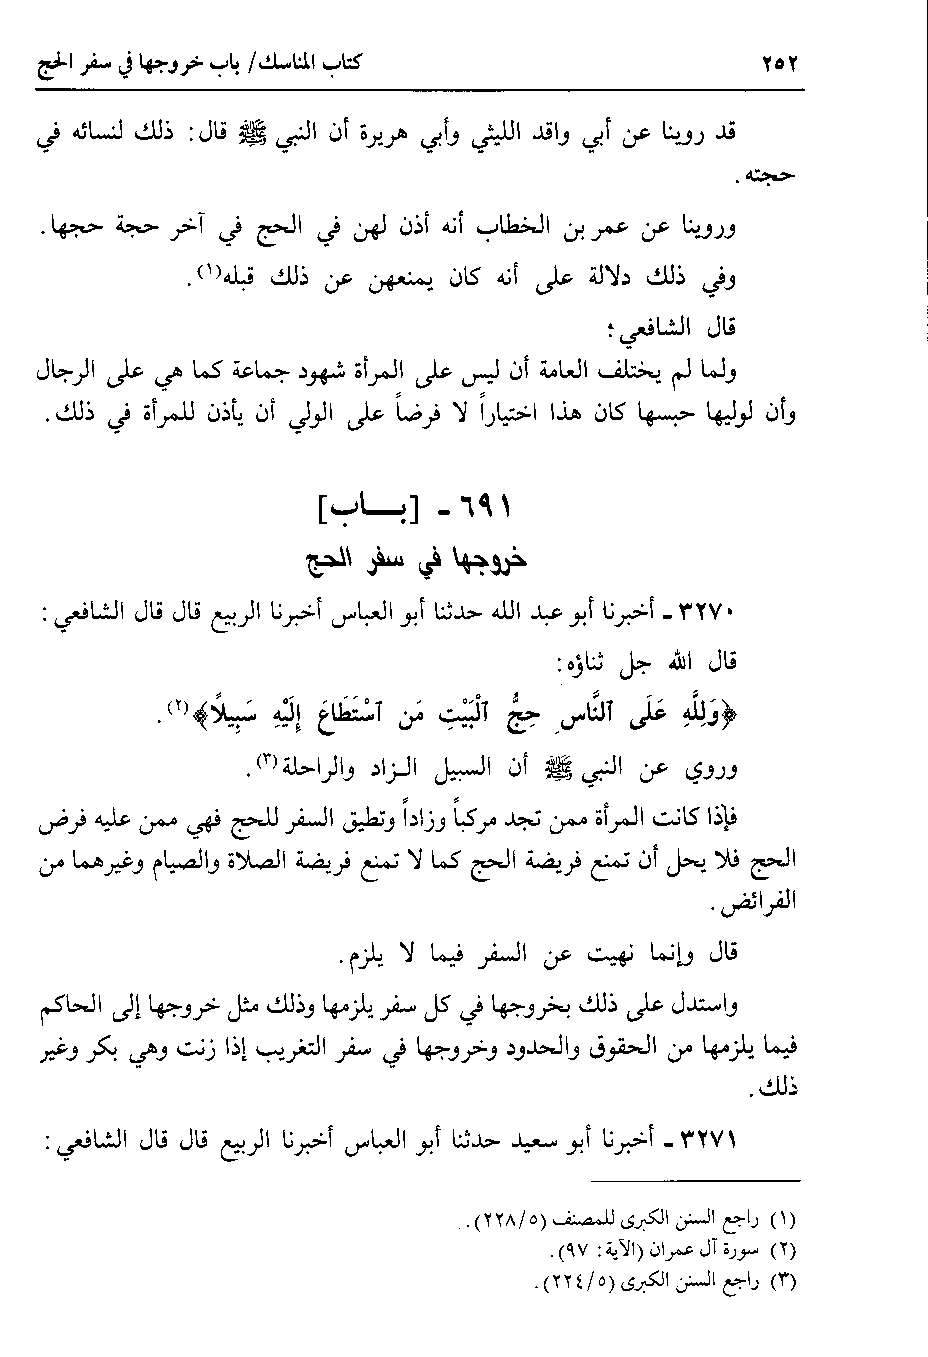 ٢٥٢ كتاب المناسك/ باب خروجها في سفر الحج
قد روينا عن أبي واقد الليثي وأبي هريرة أن النبي ﷺ قال: ذلك لنسائه في
حجته.
وروينا عن عمر بن الخطاب أنه أذن لهن في الحج في آخر حجة حجها.
وفي ذلك دلالة على أنه كان يمنعهن عن ذلك قبله(١).
قال الشافعي؛
ولما لم يختلف العامة أن ليس على المرأة شهود جماعة كما هي على الرجال
وأن لوليها حبسها كان هذا اختياراً لا فرضاً على الولي أن يأذن للمرأة في ذلك.
٦٩١ - [بـــاب]
خروجها في سفر الحج
٣٢٧٠ - أخبرنا أبو عبد الله حدثنا أبو العباس أخبرنا الربيع قال قال الشافعي:
قال الله جل ثناؤه:
﴿وَلِلَّهِ عَلَى ٱلنَّاسِ حِجُّ ٱلْبَيْتِ مَن ٱسْتَطَاعَ إِلَيْهِ سَبِيلًا﴾(٢).
وروي عن النبي ﷺ أن السبيل الـزاد والراحلة(٣).
فإذا كانت المرأة ممن تجد مركباً وزاداً وتطيق السفر للحج فهي ممن عليه فرض
الحج فلا يحل أن تمنع فريضة الحج كما لا تمنع فريضة الصلاة والصيام وغيرهما من
الفرائض.
قال وإنما نهيت عن السفر فيما لا يلزم.
واستدل على ذلك بخروجها في كل سفر يلزمها وذلك مثل خروجها إلى الحاكم
فيما يلزمها من الحقوق والحدود وخروجها في سفر التغريب إذا زنت وهي بكر وغير
ذلك.
٣٢٧١ - أخبرنا أبو سعيد حدثنا أبو العباس أخبرنا الربيع قال قال الشافعي:
(١) راجع السنن الكبرى للمصنف (٢٢٨/٥).
(٢) سورة آل عمران (الآية: ٩٧).
(٣) راجع السنن الكبرى (٢٢٤/٥).